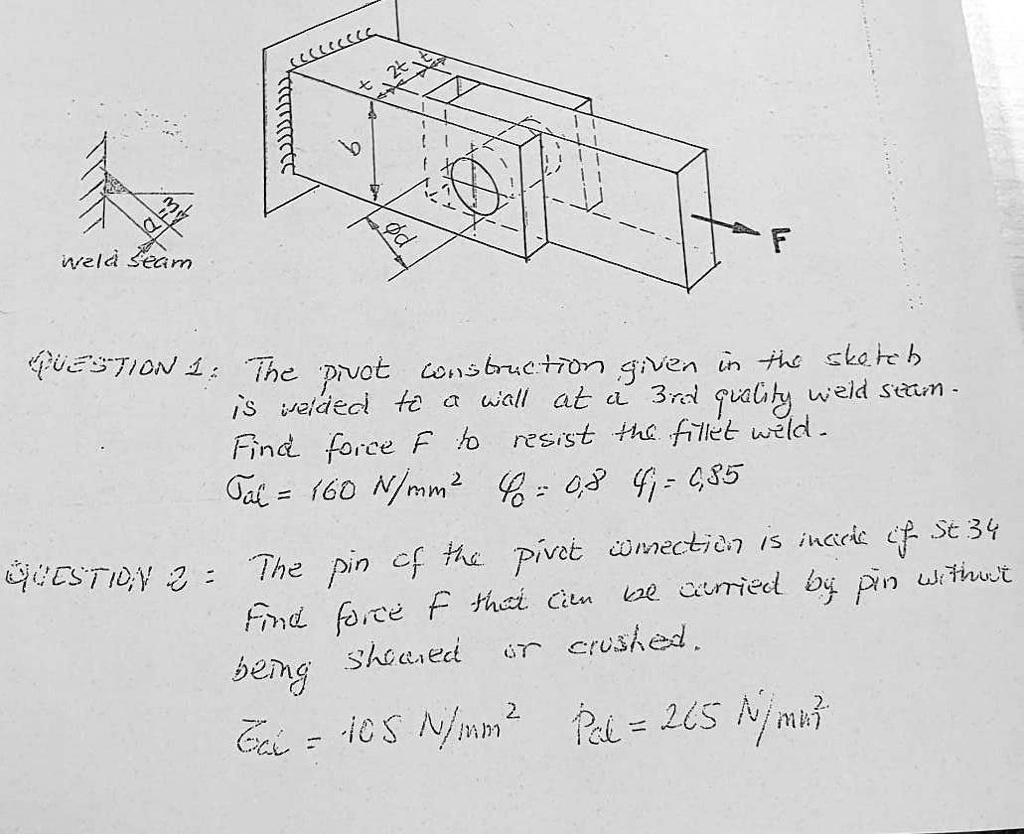 t 2t t
b
ød
F
a=3
weld seam
QUESTION 1: The pivot construction given in the sketch
is welded to a wall at a 3rd quality weld seam.
Find force F to resist the fillet weld.
σal = 160 N/mm² φ₀ = 0,8 φ₁ = 0,85
QUESTION 2 : The pin of the pivot connection is made of St 34
Find force F that can be carried by pin without
being sheared or crushed.
τal = 105 N/mm² Pal = 265 N/mm²